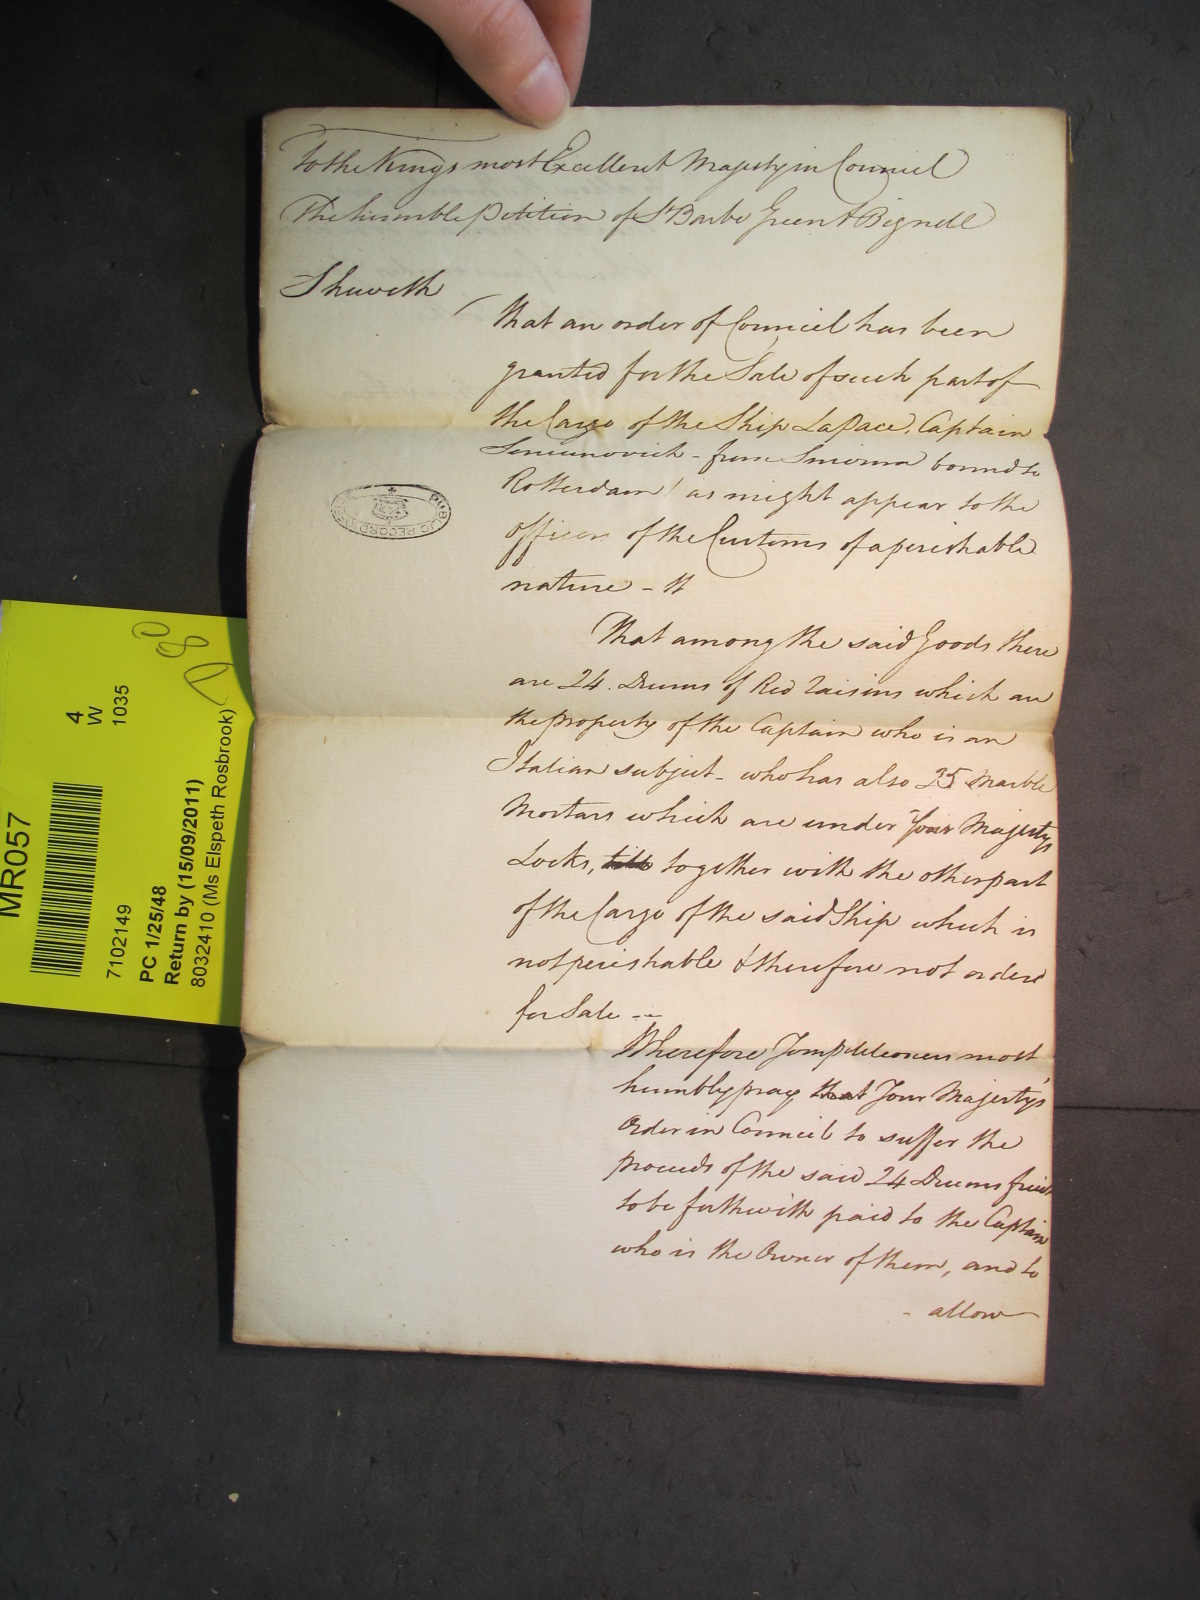 To the Kings most Excellent Majesty in Council
The humble Petition of St Barbe Green & Bignell
Sheweth
That an order of Council has been
granted for the Sale of such part of
the Cargo of the Ship La Pace, Captain
from Smirna bound to
Rotterdam / as might appear to the
officers of the Customs of a perishable
nature -
That among the said Goods there
are 24. Drums of Red raisins which are
the property of the Captain who is an
Italian subject - who has also 25 Marble
Mortars which are under Your Majestys
Locks, together with the other part
of the Cargo of the said Ship which is
not perishable & therefore not orderd
for Sale --
Wherefore Your petitioners most
humbly pray that Your Majesty's
Order in Council to suffer the
proceeds of the said 24 Drums fruit
to be forthwith paid to the Captain
who is the Owner of them, and to
- allow
PUBLIC RECORD OFFICE
MR057
4
W
1035
7102149
PC 1/25/48
Return by (15/09/2011)
8032410 (Ms Elspeth Rosbrook)